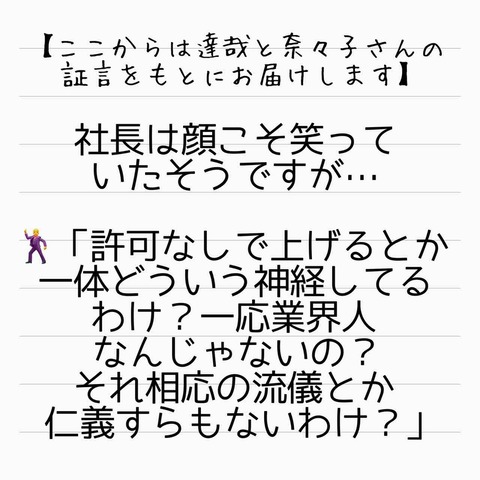 【ここからは達哉と奈々子さんの
証言をもとにお届けします】
社長は顔こそ笑って
いたそうですが…
🕺「許可なしで上げるとか
一体どういう神経してる
わけ？一応業界人
なんじゃないの？
それ相応の流儀とか
仁義すらもないわけ？」